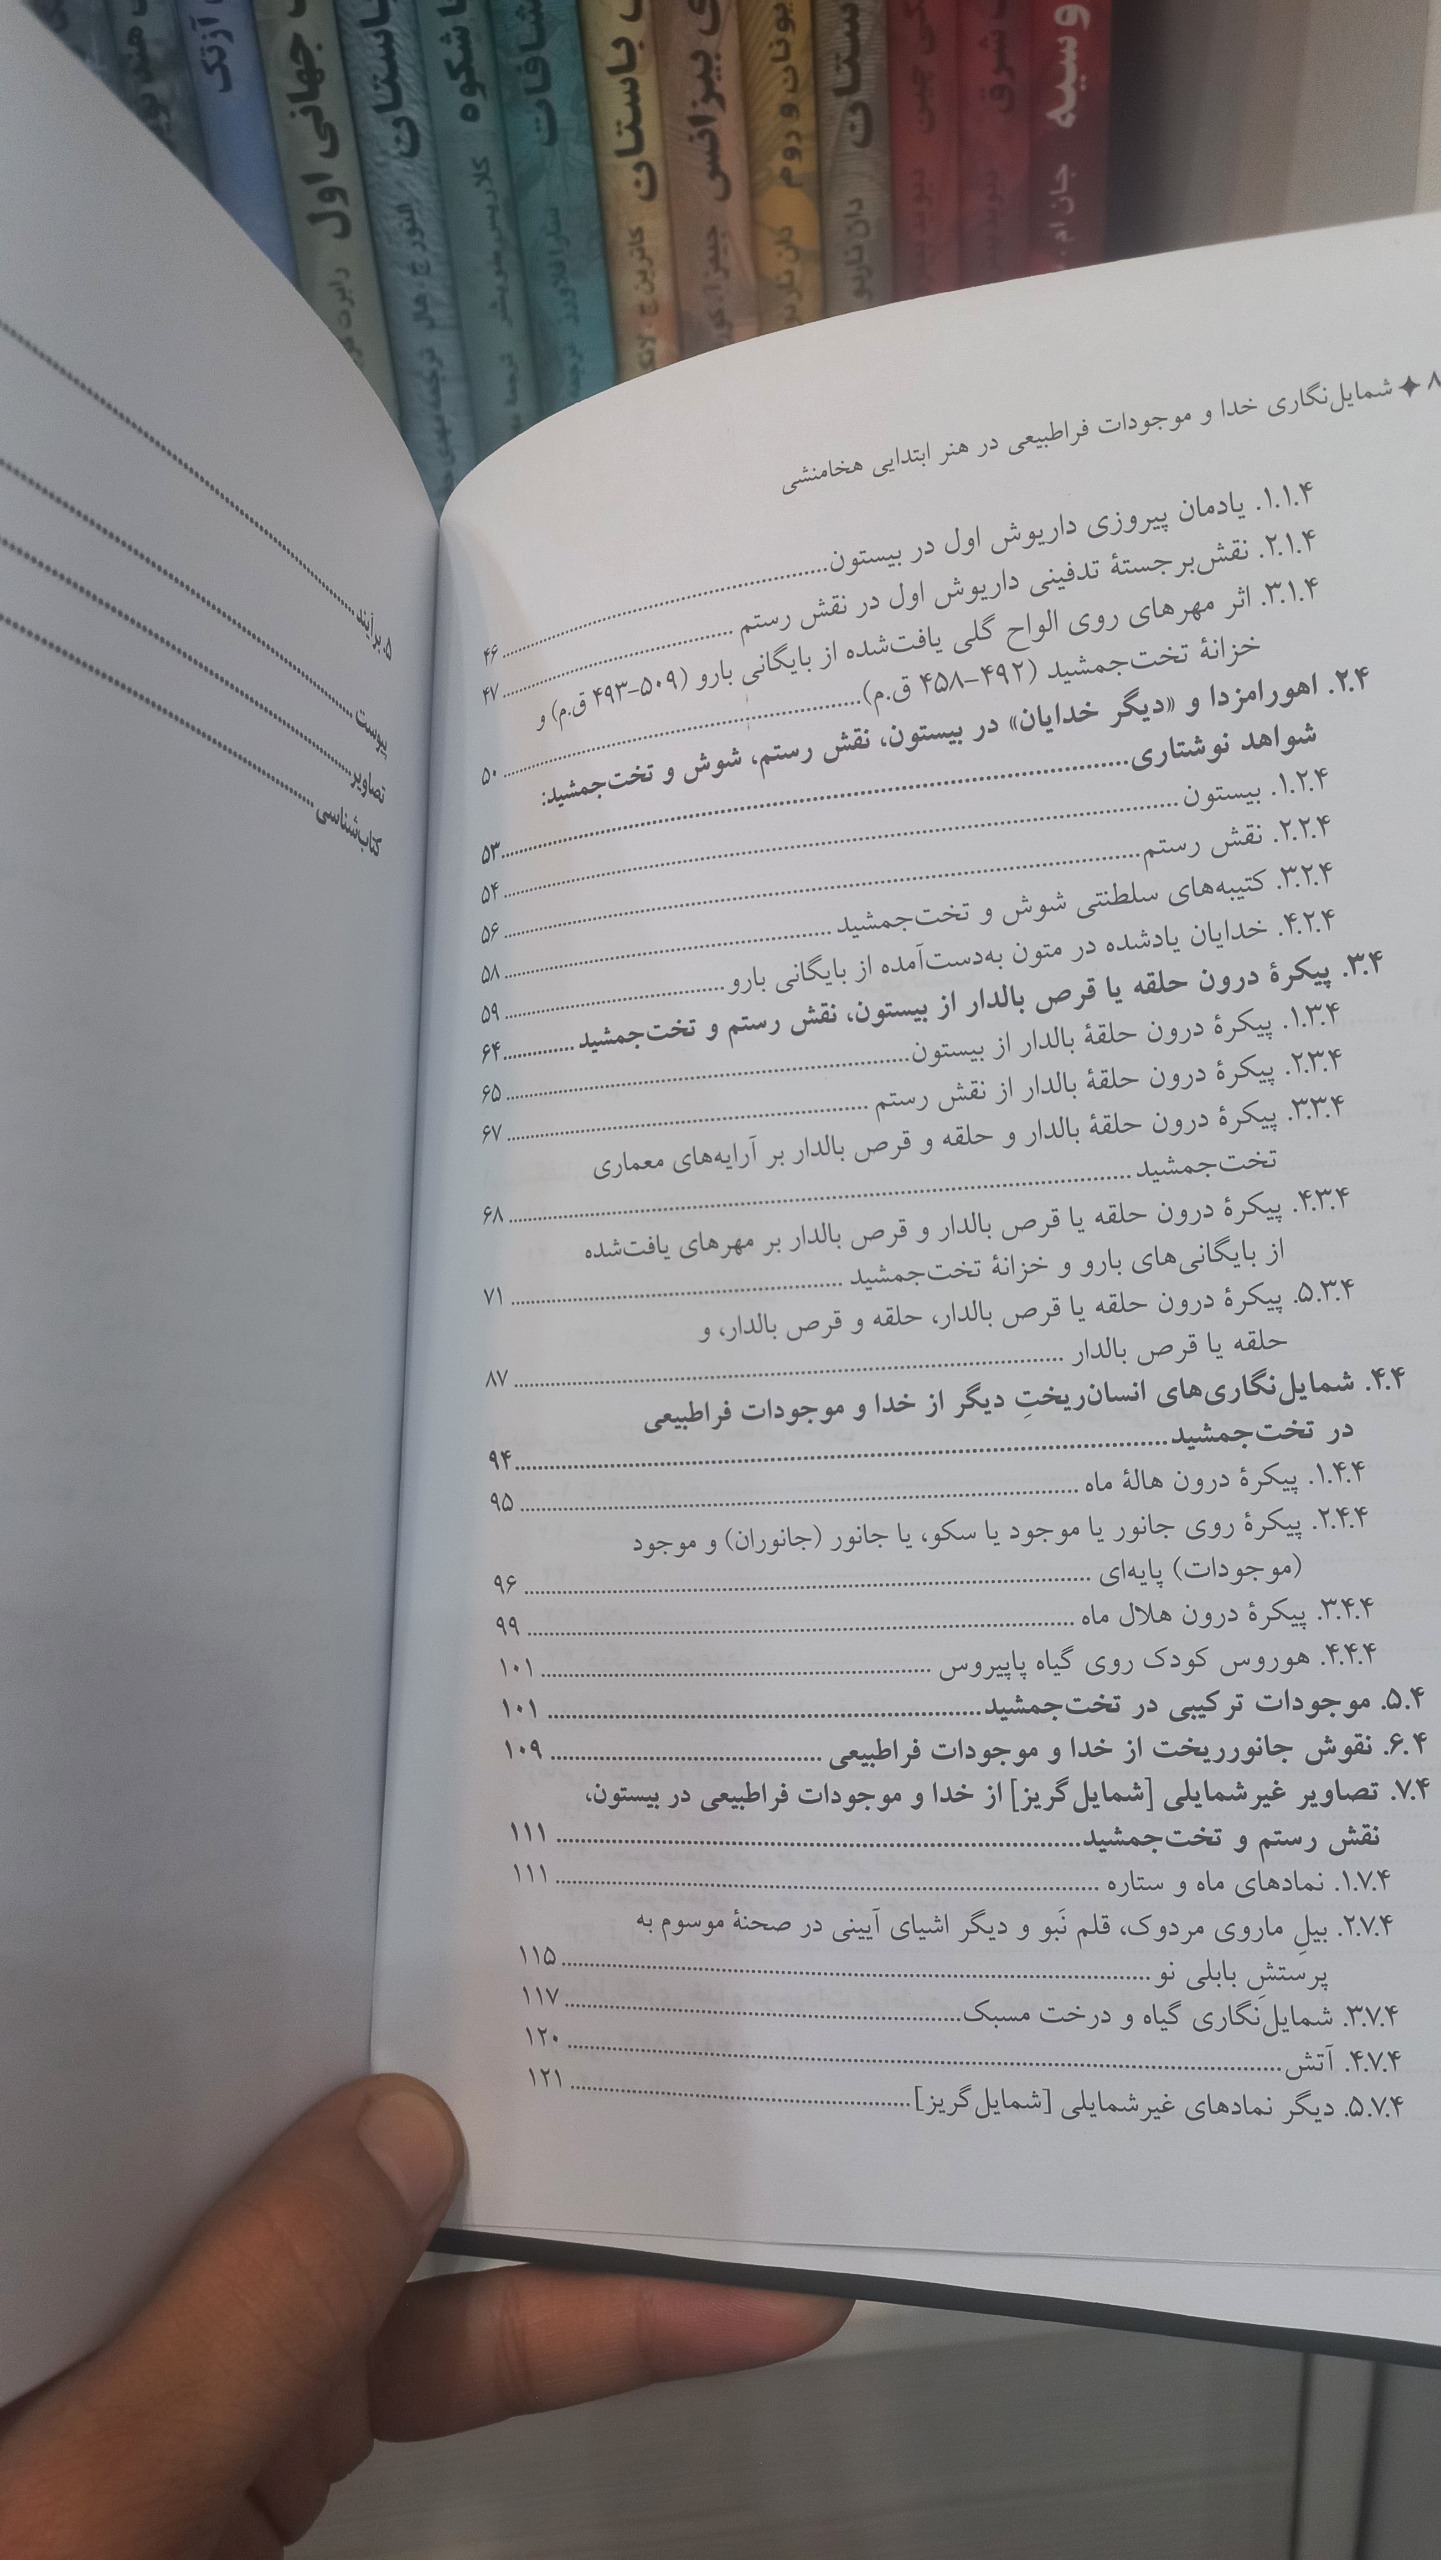 آزتک
جهانی اول
باستان
شکوه
باستان
بیزانس
یونان و روم
ستان
شرق
وسیه
جان ام.
۸ ✦ شمایل‌نگاری خدا و موجودات فراطبیعی در هنر ابتدایی هخامنشی
۱.۱.۴. یادمان پیروزی داریوش اول در بیستون ۴۶
۲.۱.۴. نقش‌برجستهٔ تدفینی داریوش اول در نقش رستم ۴۷
۳.۱.۴. اثر مهرهای روی الواح گلی یافت‌شده از بایگانی بارو (۵۰۹-۴۹۳ ق.م) و
خزانهٔ تخت‌جمشید (۴۹۲-۴۵۸ ق.م) ۵۰
۲.۴. اهورامزدا و «دیگر خدایان» در بیستون، نقش رستم، شوش و تخت‌جمشید:
شواهد نوشتاری ۵۳
۱.۲.۴. بیستون ۵۴
۲.۲.۴. نقش رستم ۵۶
۳.۲.۴. کتیبه‌های سلطنتی شوش و تخت‌جمشید ۵۸
۴.۲.۴. خدایان یادشده در متون به‌دست‌آمده از بایگانی بارو ۵۹
۳.۴. پیکرهٔ درون حلقه یا قرص بالدار از بیستون، نقش رستم و تخت‌جمشید ۶۴
۱.۳.۴. پیکرهٔ درون حلقهٔ بالدار از بیستون ۶۵
۲.۳.۴. پیکرهٔ درون حلقهٔ بالدار از نقش رستم ۶۷
۳.۳.۴. پیکرهٔ درون حلقهٔ بالدار و حلقه و قرص بالدار بر آرایه‌های معماری
تخت‌جمشید ۶۸
۴.۳.۴. پیکرهٔ درون حلقه یا قرص بالدار و قرص بالدار بر مهرهای یافت‌شده
از بایگانی‌های بارو و خزانهٔ تخت‌جمشید ۷۱
۵.۳.۴. پیکرهٔ درون حلقه یا قرص بالدار، حلقه و قرص بالدار، و
حلقه یا قرص بالدار ۸۷
۴.۴. شمایل‌نگاری‌های انسان‌ریختِ دیگر از خدا و موجودات فراطبیعی
در تخت‌جمشید ۹۴
۱.۴.۴. پیکرهٔ درون هالهٔ ماه ۹۵
۲.۴.۴. پیکرهٔ روی جانور یا موجود یا سکو، یا جانور (جانوران) و موجود
(موجودات) پایه‌ای ۹۶
۳.۴.۴. پیکرهٔ درون هلال ماه ۹۹
۴.۴.۴. هوروس کودک روی گیاه پاپیروس ۱۰۱
۵.۴. موجودات ترکیبی در تخت‌جمشید ۱۰۱
۶.۴. نقوش جانورریخت از خدا و موجودات فراطبیعی ۱۰۹
۷.۴. تصاویر غیرشمایلی [شمایل‌گریز] از خدا و موجودات فراطبیعی در بیستون،
نقش رستم و تخت‌جمشید ۱۱۱
۱.۷.۴. نمادهای ماه و ستاره ۱۱۱
۲.۷.۴. بیلِ ماروی مردوک، قلم نَبو و دیگر اشیای آیینی در صحنهٔ موسوم به
پرستشِ بابلی نو ۱۱۵
۳.۷.۴. شمایل‌نگاری گیاه و درخت مسبک ۱۱۷
۴.۷.۴. آتش ۱۲۰
۵.۷.۴. دیگر نمادهای غیرشمایلی [شمایل‌گریز] ۱۲۱
۵. برآیند
پیوست
تصاویر
کتاب‌شناسی